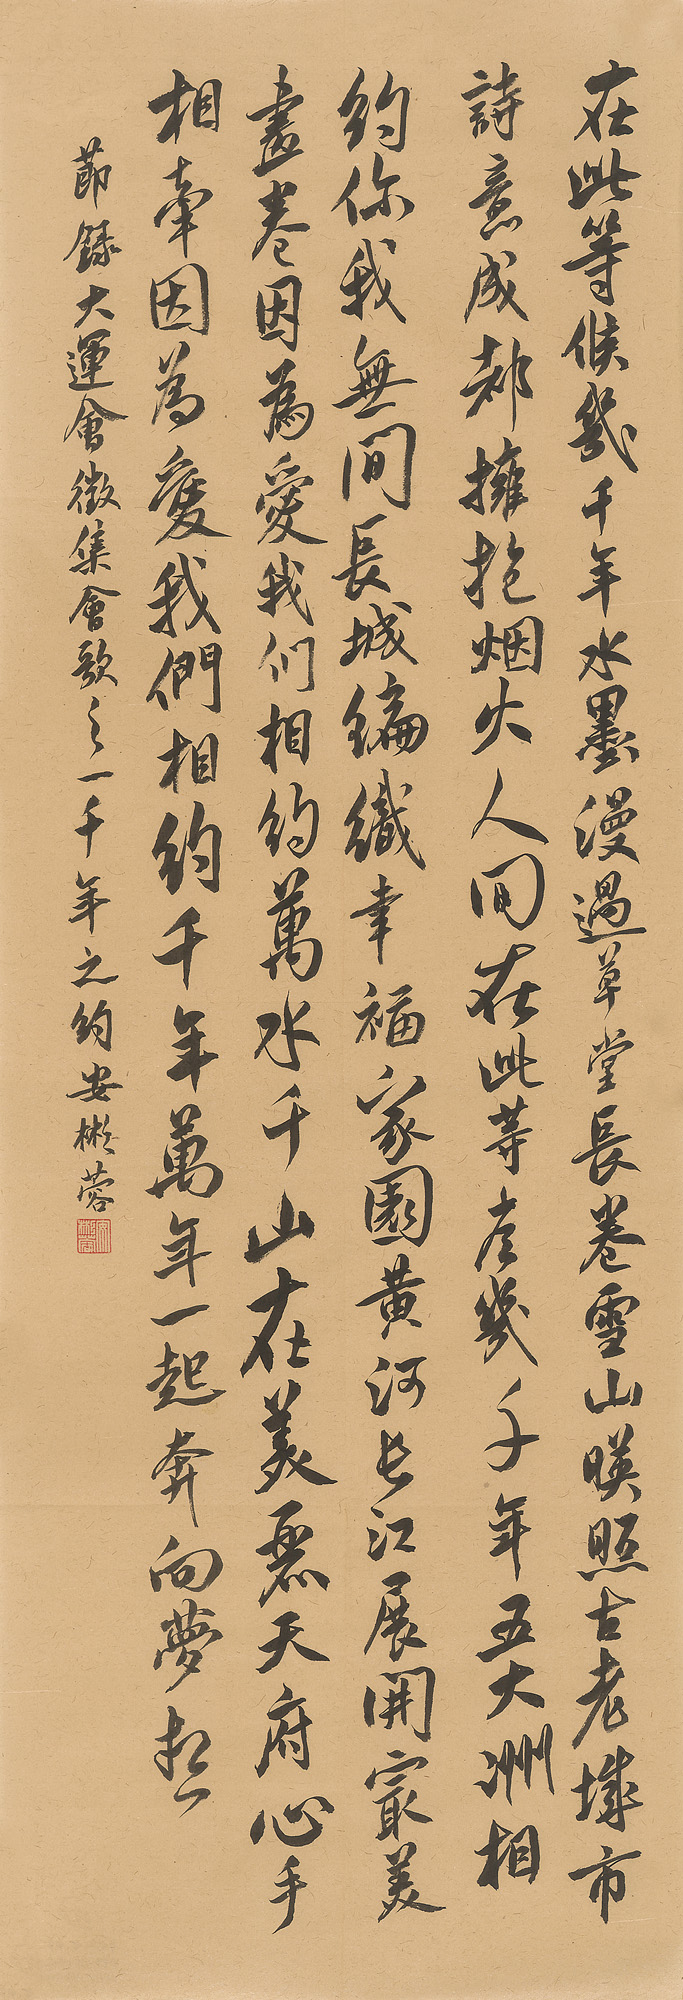 在此等候幾千年水墨漫過草堂長卷雪山暎照古老城市
詩意成都擁抱烟火人间在此等彦幾千年五大洲相
約你我無間長城编織幸福家園黄河长江展開最美
畫卷因為愛我们相約萬水千山在美麗天府心手
相牽因為愛我們相約千年萬年一起奔向夢想
節録大運會徵集會歌之一千年之約安彬蓉